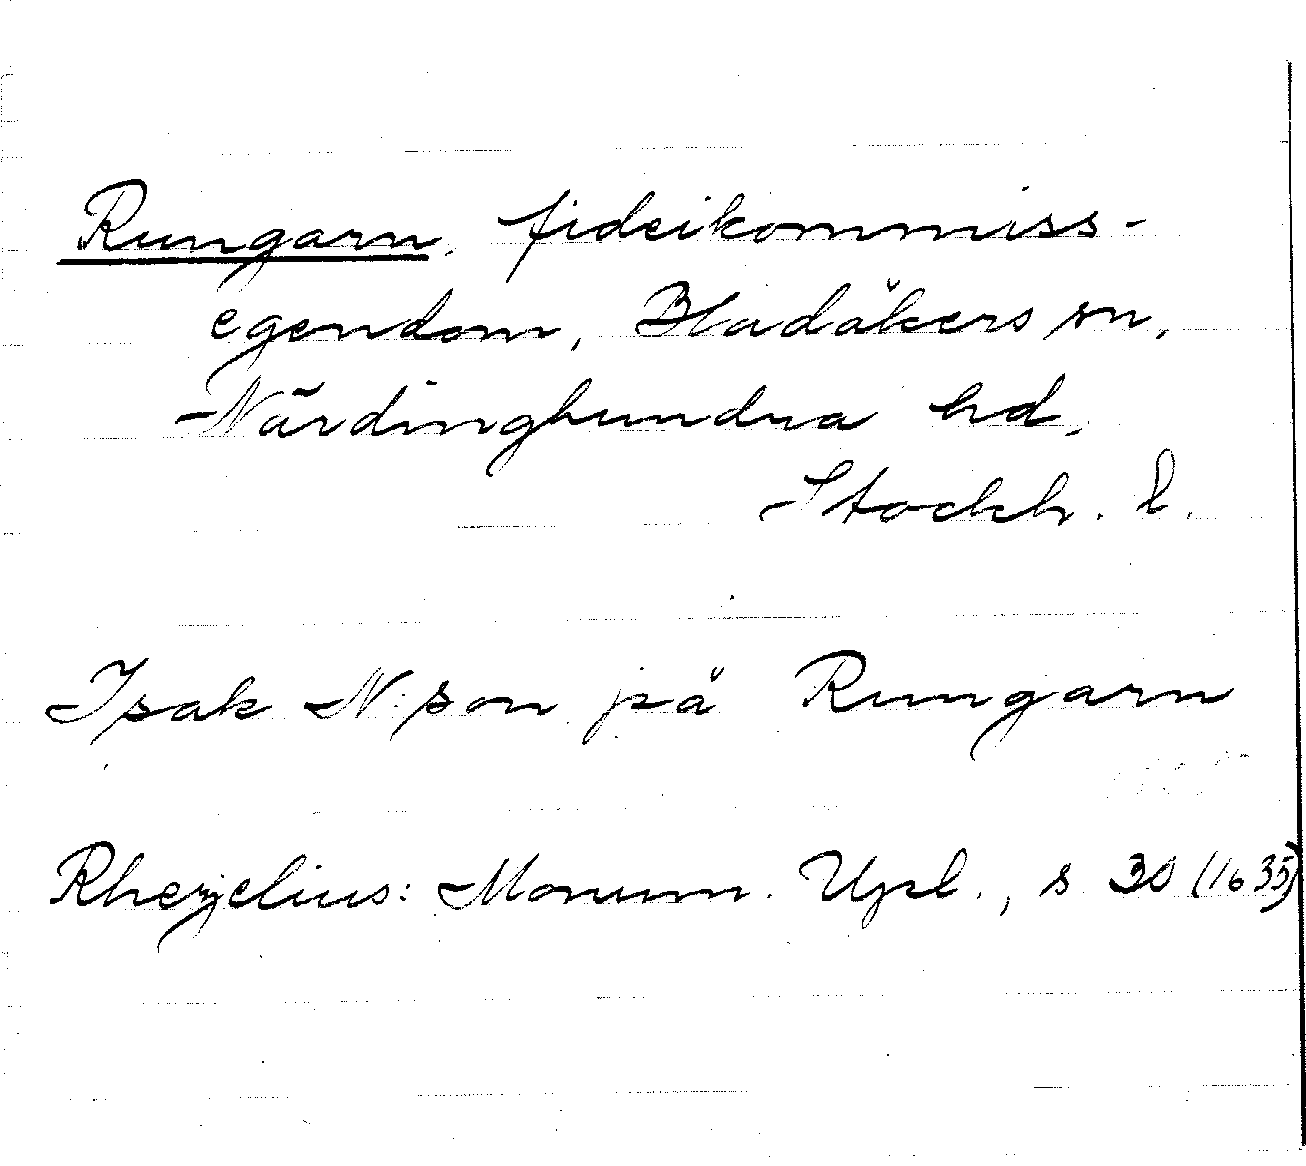 Rungarn, fideikommiss-
egendom, Bladåkers sn,
Närdinghundra hd,
Stockh. l.
Isak N:son på Rungarn
Rhezelius: Monum. Upl., s 30 (1635)